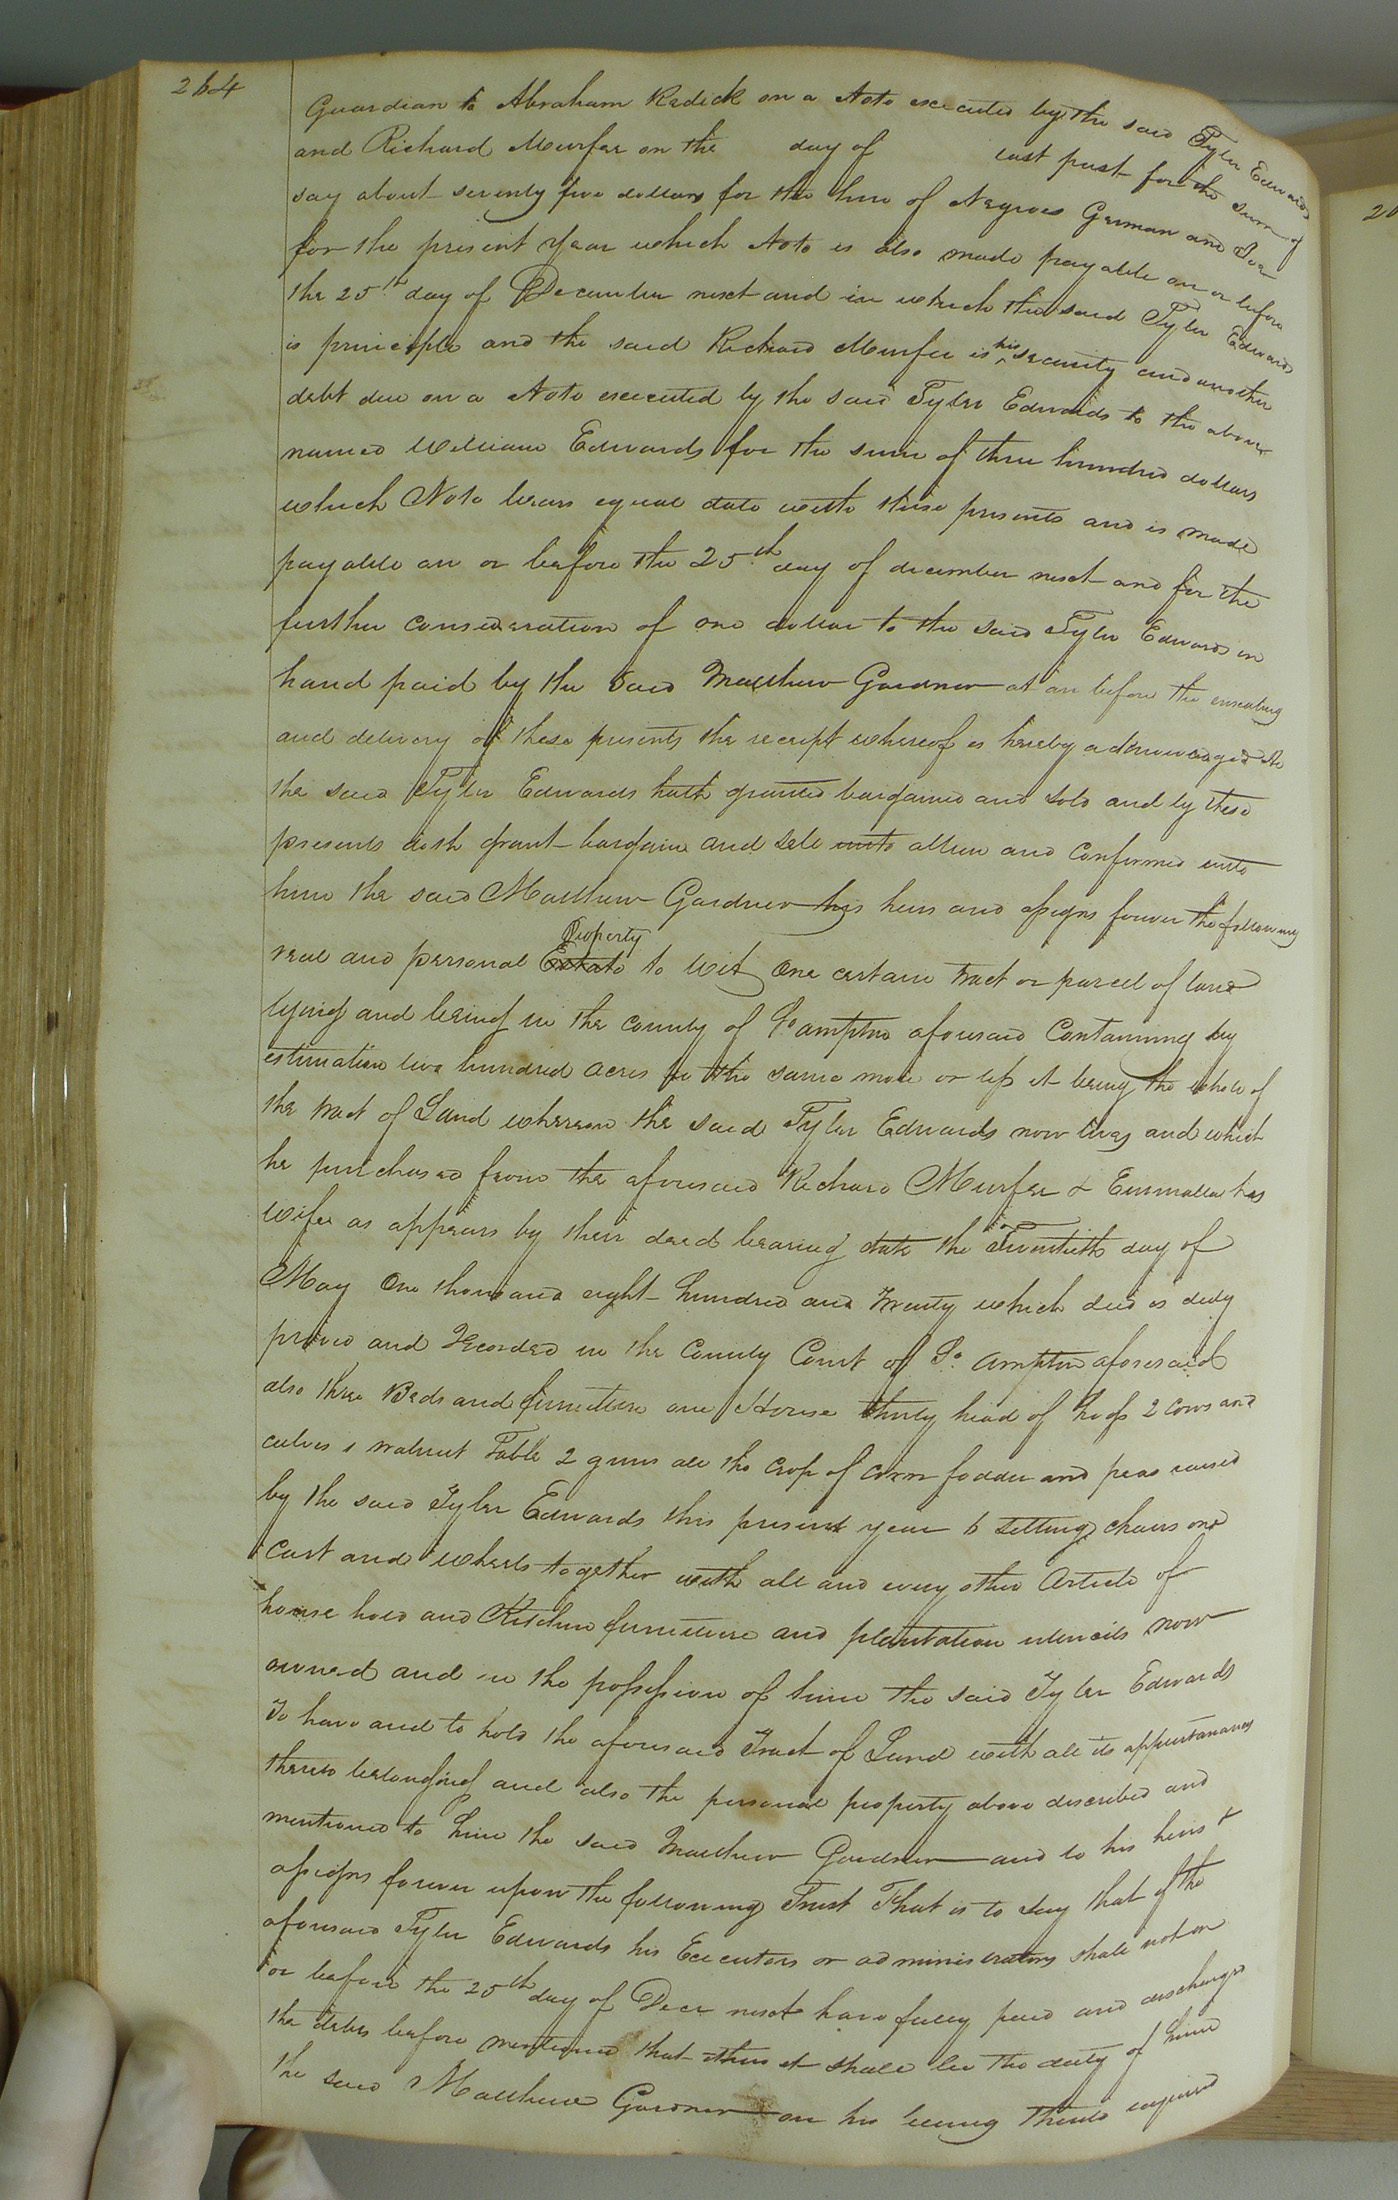 264
Guardian to Abraham Redick on a Note executed by the said Tyler Edwards
and Richard Murfee on the day of last past for the sum of
say about seventy five dollars for the hire of Negroes German and Joe
for the present Year which Note is also made payable on or before
the 25th day of December next and in which the said Tyler Edwards
is principle and the said Richard Murfee is his security and another
debt due on a Note executed by the said Tyler Edwards to the above
named William Edwards for the sum of three hundred dollars
which Note bears equal date with these presents and is made
payable on or before the 25th day of december next and for the
further consideration of one dollar to the said Tyler Edwards in
hand paid by the said Matthew Gardner at or before the ensealing
and delivery of these presents the receipt whereof is hereby acknowledged he
the said Tyler Edwards hath granted bargained and sold and by these
presents doth grant bargain and sell unto alien and confirmed unto
him the said Matthew Gardner his heirs and assigns forever the following
real and personal Estate Property to wit One certain tract or parcel of land
lying and being in the county of So ampton aforesaid Containing by
estimation two hundred acres be the same more or less it being the whole of
the tract of Land whereon the said Tyler Edwards now lives and which
he purchased from the aforesaid Richard Murfee & his
wife as appears by their deed bearing date the Twentieth day of
May One thousand eight hundred and twenty which deed is duly
proved and Recorded in the County Court of So ampton aforesaid
also three Beds and furniture one Horse thirty head of hogs 2 cows and
calves 1 walnut Table 2 guns all the crop of corn fodder and peas raised
by the said Tyler Edwards this present year 6 setting chairs one
cart and wheels together with all and every other Article of
house hold and Kitchen furniture and plantation utencils now
owned and in the possession of him the said Tyler Edwards
To have and to hold the aforesaid Tract of Land with all its appurtanances
thereto belonging and also the personal property above described and
mentioned to him the said Matthew Gardner and to his heirs &
assigns forever upon the following Trust That is to say that if the
aforesaid Tyler Edwards his Executors or administrators shall not on
or before the 25th day of Decr next have fully paid and discharged
the debts before mentioned that then it shall be the duty of him
the said Matthew Gardner on his being thereto required